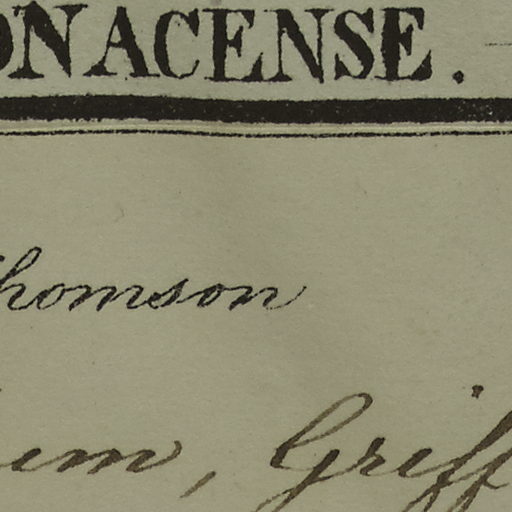 ONACENSE.
homson
um, Griff